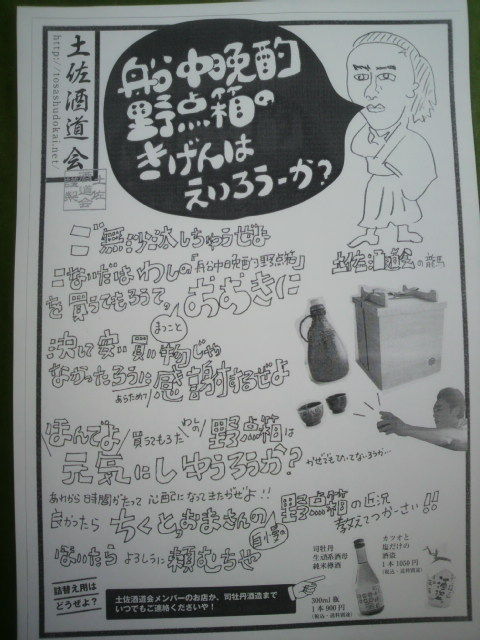 土佐酒道会
http://tosashudokai.net/
船中晩酌
野点箱の
きげんは
えいろうーか?
土佐酒道会の龍馬
ご無沙汰しちゅうぜよ
こないだはわしの『船中晩酌野点箱』
を買うてもろうて。おおきに
まっこと
決して安い買い物じゃ
なかったろうに
あらためて
感謝するぜよ
ほんでよ
買うてもろた
わしの
野点箱は
元気にしゆうろうか?
かぜでもひいてないろうか…
あれから日時間がたって心配になってきたがぜよ!!
良かったら
ちくとおまさんの
野点箱の近況
教えてつかーさい!!
ほいたら
よろしうに
頼むちや
詰替え用は
どうぜよ?
土佐酒道会メンバーのお店か、司牡丹酒造まで
いつでもご連絡くださいや!
司牡丹
生酛系酒母
純米樽酒
300ml 瓶
1本900円
(税込・送料別途)
カツオと
塩だけの
酒盗
1本1050円
(税込・送料別途)